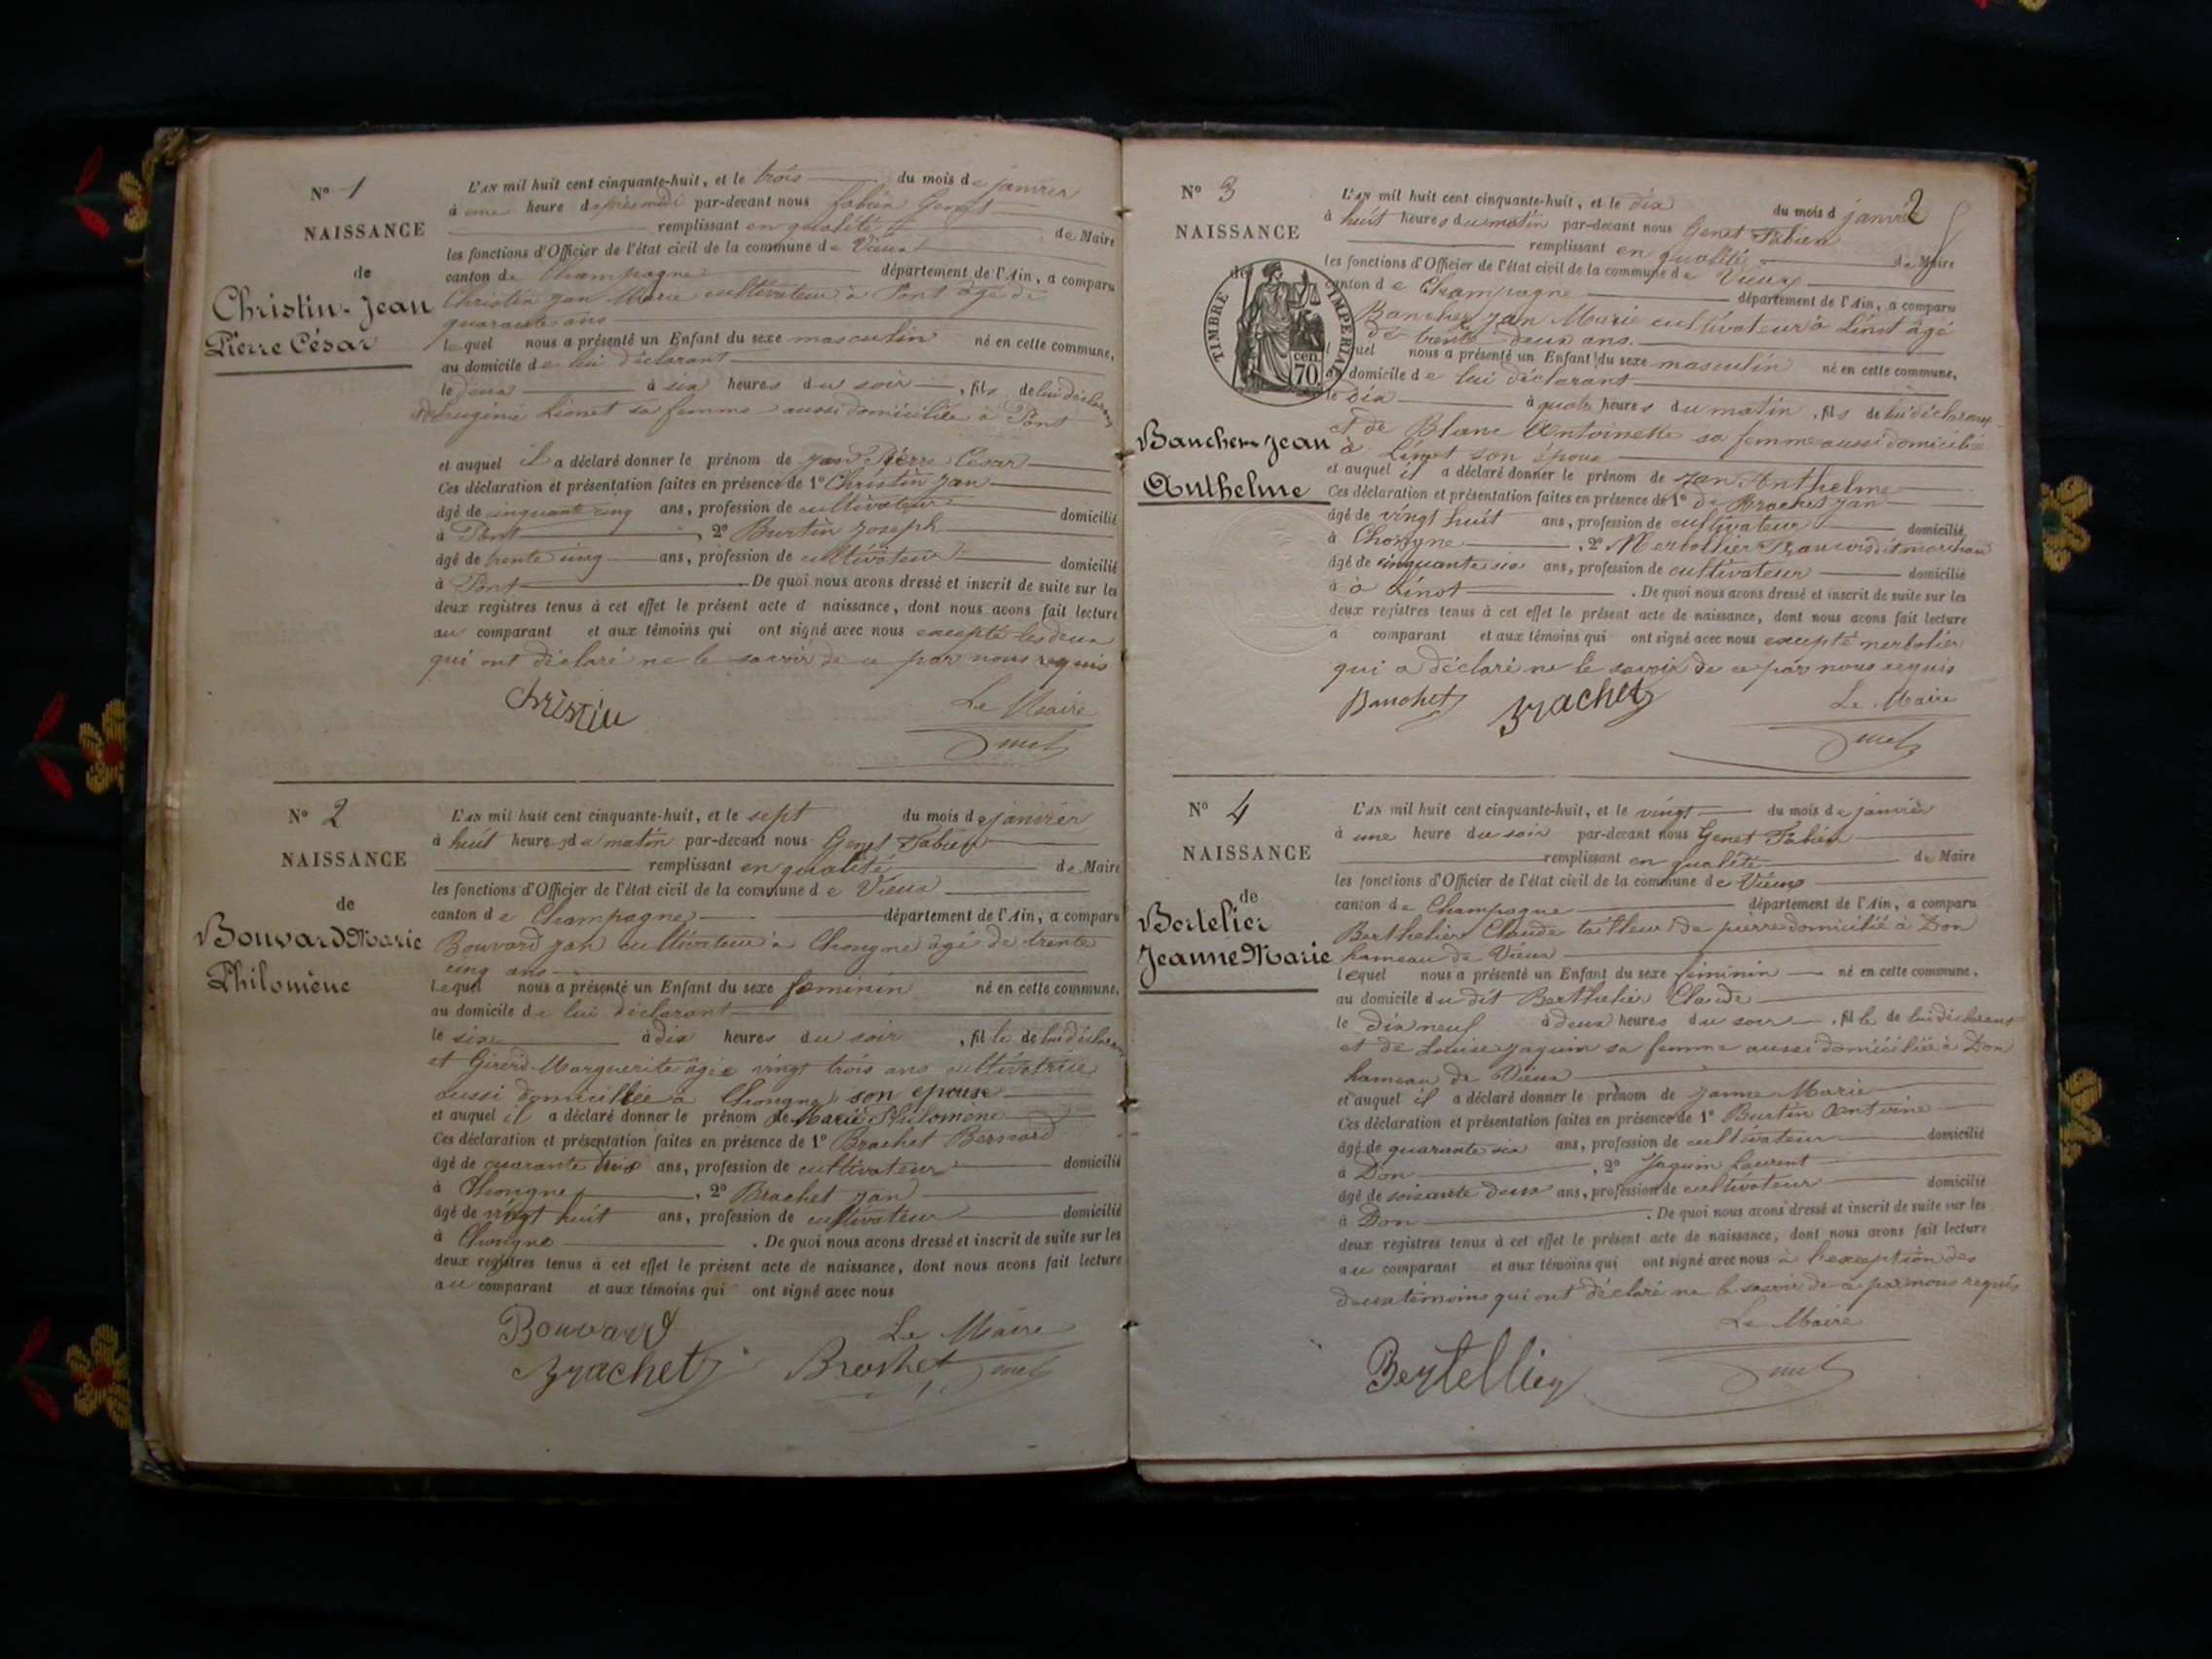 N° 1
NAISSANCE
de
Christin-Jean
Pierre César
L'AN mil huit cent cinquante-huit, et le trois du mois de janvier
à une heure d'après midi par-devant nous fabien Genet
remplissant en qualité de Maire
les fonctions d'Officier de l'état civil de la commune de Vieux
canton de Champagne département de l'Ain, a comparu
Christin jan Marie cultivateur à Pont âgé de
quarante ans
lequel nous a présenté un Enfant du sexe masculin né en cette commune,
au domicile de lui déclarant
le deux à six heures du soir, fils de lui déclarant
Eugénie Lionet sa femme aussi domiciliée à Pont
et auquel il a déclaré donner le prénom de jean Pierre César
Ces déclaration et présentation faites en présence de 1° Christin jan
âgé de cinquante cinq ans, profession de cultivateur domicilié
à Pont, 2° Burtin joseph
âgé de trente cinq ans, profession de cultivateur domicilié
à Pont. De quoi nous avons dressé et inscrit de suite sur les
deux registres tenus à cet effet le présent acte d naissance, dont nous avons fait lecture
au comparant et aux témoins qui ont signé avec nous excepté les deux
qui ont déclaré ne le savoir de ce par nous requis
christin
Le Maire
Genet
N° 2
NAISSANCE
de
Bouvard Marie
Philomène
L'AN mil huit cent cinquante-huit, et le sept du mois de janvier
à huit heures du matin par-devant nous Genet Fabien
remplissant en qualité de Maire
les fonctions d'Officier de l'état civil de la commune de Vieux
canton de Champagne département de l'Ain, a comparu
Bouvard jan cultivateur à Chongne âgé de trente
cinq ans
lequel nous a présenté un Enfant du sexe feminin né en cette commune,
au domicile de lui déclarant
le six à dix heures du soir, fille de lui déclarant
et Girerd Marguerite âgée vingt trois ans cultivatrice
aussi domicilliée à Chongne son epouse
et auquel il a déclaré donner le prénom de Marie Philomène
Ces déclaration et présentation faites en présence de 1° Brachet Bernard
âgé de quarante trois ans, profession de cultivateur domicilié
à Chongne, 2° Brachet jan
âgé de vingt huit ans, profession de cultivateur domicilié
à Chongne. De quoi nous avons dressé et inscrit de suite sur les
deux registres tenus à cet effet le présent acte de naissance, dont nous avons fait lecture
au comparant et aux témoins qui ont signé avec nous
Bouvard
Le Maire
Brachet Brachet Genet
2
N° 3
NAISSANCE
de
TIMBRE IMPERIAL
70 cen
Bancher jean
Anthelme
L'AN mil huit cent cinquante-huit, et le dix du mois d janvier
à huit heures du matin par-devant nous Genet Fabien
remplissant en qualité de Maire
les fonctions d'Officier de l'état civil de la commune de Vieux
canton de Champagne département de l'Ain, a comparu
jan Marie cultivateur à Linot âgé
de trente deux ans.
lequel nous a présenté un Enfant du sexe masculin né en cette commune,
au domicile de lui déclarant
le Dix à quatre heures du matin, fils de lui déclarant
et de Blanc Antoinette sa femme aussi domiciliée
à Linot son épouse
et auquel il a déclaré donner le prénom de jan Anthelme
Ces déclaration et présentation faites en présence de 1° de Brachet jan
âgé de vingt huit ans, profession de cultivateur domicilié
à Chongne, 2° François dit
âgé de cinquante six ans, profession de cultivateur domicilié
à à Linot. De quoi nous avons dressé et inscrit de suite sur les
deux registres tenus à cet effet le présent acte de naissance, dont nous avons fait lecture
a comparant et aux témoins qui ont signé avec nous excepté
qui a déclaré ne le savoir de ce par nous requis
Banchet Brachet
Le Maire
Genet
N° 4
NAISSANCE
de
Bertelier
Jeanne Marie
L'AN mil huit cent cinquante-huit, et le vingt du mois de janvier
à une heure du soir par-devant nous Genet Fabien
remplissant en qualité de Maire
les fonctions d'Officier de l'état civil de la commune de Vieux
canton de Champagne département de l'Ain, a comparu
Berthelier Claude tailleur de pierre domicilié à Don
hameau de Vieux
lequel nous a présenté un Enfant du sexe féminin né en cette commune,
au domicile du dit Berthelier Claude
le dix neuf à deux heures du soir, fille de lui déclarant
et de Louise jaquin sa femme aussi domiciliée à Don
hameau de Vieux
et auquel il a déclaré donner le prénom de janne Marie
Ces déclaration et présentation faites en présence de 1° Burtin Antoine
âgé de quarante six ans, profession de cultivateur domicilié
à Don, 2° Jaquin Laurent
âgé de soixante deux ans, profession de cultivateur domicilié
à Don. De quoi nous avons dressé et inscrit de suite sur les
deux registres tenus à cet effet le présent acte de naissance, dont nous avons fait lecture
au comparant et aux témoins qui ont signé avec nous à l'exception des
deux témoins qui ont déclaré ne le savoir de ce par nous requis
Le Maire
Bertellier Genet